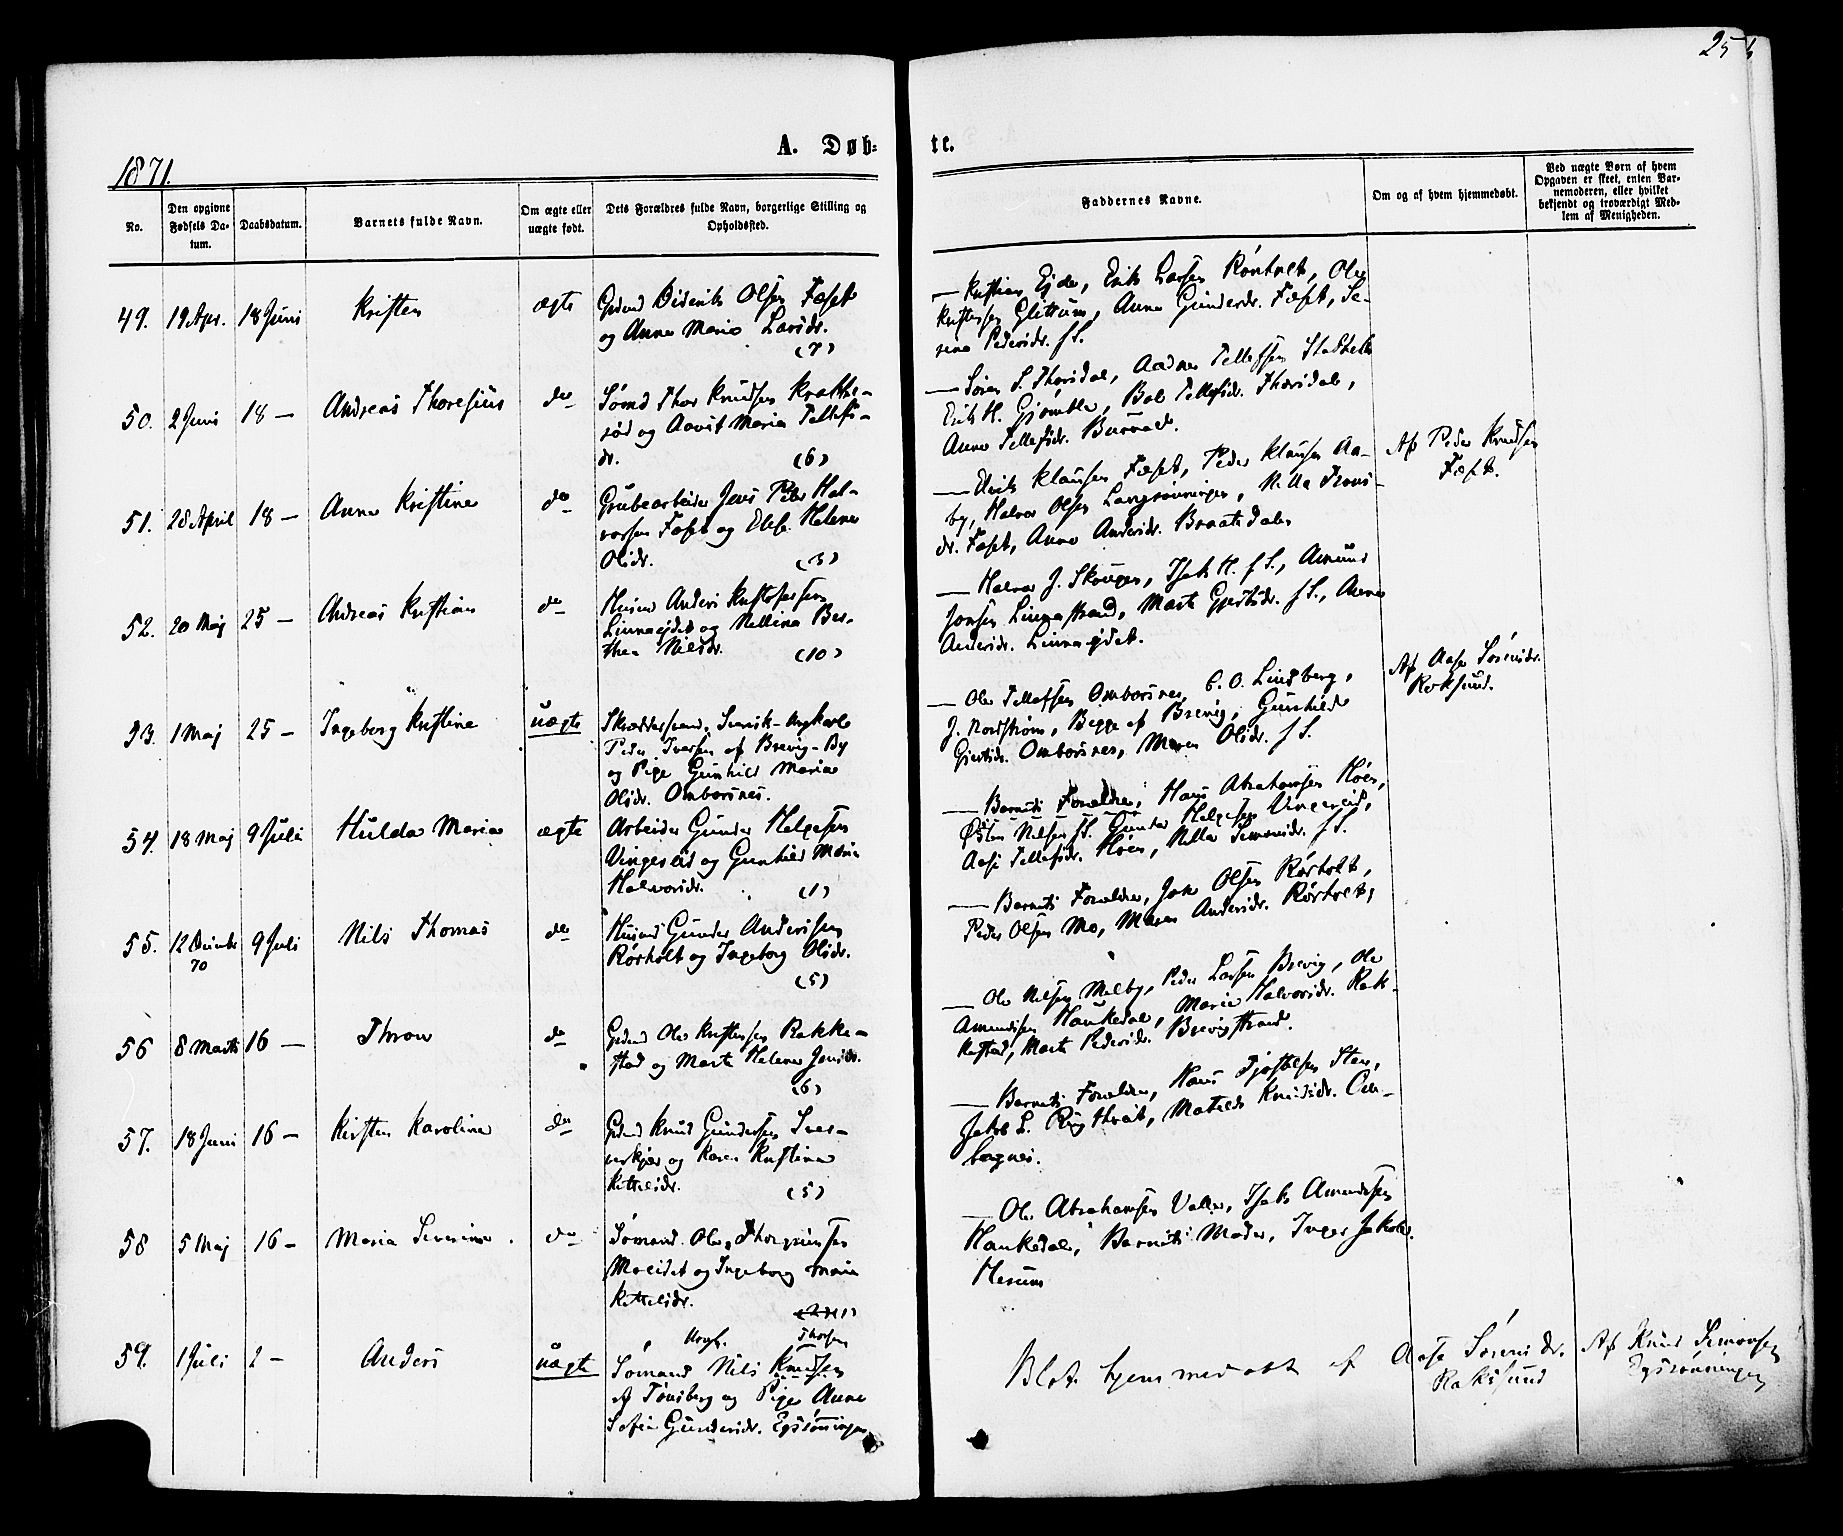 25
1871.
A. Døb-
te.
No.
Den opgivne Fødsels Da-
tum.
Daabsdatum.
Barnets fulde Navn.
Om ægte eller uægte født.
Dets Forældres fulde Navn, borgerlige Stilling og
Opholdssted.
Faddernes Navne.
Om og af hvem hjemmedøbt.
Ved uægte Børn af hvem
Opgaven er skeet, enten Bar-
nemoderen, eller hvilket
bekjendt og troværdigt Med-
lem af Menigheden.
49. 19 Apr. 18 Juni Kristen ægte Gdmd Diderik Olsen Fæset
og Anne Maria Larsdr.
(7)
— Kristian Ejde, Erik Larsen Rørholt, Ole
Kristensen Glittum, Anne Gundersdr. Fæset,
Pedersdr. f S.
50. 2 Juni 18 — Andreas Thoresius do Sømd Thor Knudsen
og Maria Tellefs-
dr. (6)
— Søren S. Thorsdal, Aadne Tellefsen Stadhelle
Erik H. Gjømle, Tellefsdr. Thorsdal,
Anne Tellefsdr.
51. 28 April 18 — Anne Kristine do Grubearbeider Jens Peter Hal-
vorsen Fæset og Else Helene
Olsdr. (3)
— Erik Klausen Fæset, Peder Klausen Aa-
by, Halvor Olsen Langrønningen,
dr. Fæset, Anne Andersdr. Braatedalen
Af Peder Knudsen
Fæset.
52. 20 Maj 25 — Andreas Kristian do Husmd Anders Kristofersen
Linnaejdet og Nelline Ber-
thea Nilsdr. (10)
— Halvor J. Skougen, Isak H. f S., Amund
Jonsen Linnastrand, Marte Gjertsdr. f S., Anne
Andersdr. Linnaejdet.
53. 1 Maj 25 — Ingeborg Kristine uægte Skræddersvend,
Peder Iversen af Brevig-By
og Pige Gunhild Maria
Olsdr. Omborsnes.
— Ole Tellefsen Omborsnes, C. O. Lindberg,
J. Nordstrøm, Begge af Brevig, Gunhild
Gjertsdr. Omborsnes, Maren Olsdr. f S.
Af Aase Sørensdr.
Roksund.
54. 18 Maj 9 Juli Hulda Maria ægte Arbeider Gunder Helgesen
Vingereid og Gunhild Marie
Halvorsdr. (1)
— Barnets Forældre, Hans Abrahamsen Høen,
Østen Nilsen f S. Gunder Helgesen Vingereid,
Aase Tellefsdr. Høen, Simonsdr. f S.
55. 12 Decembr 70 9 Juli Nils Thomas do Husmd Gunder Andersen
Rørholt og Ingeborg Olsdr.
(5)
— Barnets Forældre, Jon Olsen Rørholt,
Peder Olsen Mo, Maren Andersdr. Rørholt,
56 8 Marts 16 — Thron do Gdmd Ole Kristensen Rakke-
stad og Marte Helene Jensdr.
(6)
— Ole Nilsen Melby, Peder Larsen Brevig, Ole
Amundsen Haukedal, Marie Halvorsdr. Rak-
kestad, Marte Pedersdr. Brevigstrand.
57. 18 Juni 16 — Kirsten Karoline do Gdmd Knud Gundersen
og Karen Kristine
Kittelsdr. (5)
— Barnets Forældre, Hans Tjostolsen Sten,
Jakob L. Mathilde Knudsdr.
58 5 Maj 16 — Maria Severine do Sømand Ole Thorgrimsen
Moeidet og Ingeborg Marie
Kittelsdr. (1)
— Ole Abrahamsen Valle, Isak Amundsen
Haukedal, Barnets Moder, Inger Jakobs.
Hesum
59. 1 Juli 2 — Anders uægte Ungk. Thorsen
Sømand Nils Knudsen
af Tønsberg og Pige Anne
Sofie Gundersdr. Egsrønningen
Blot hjemmedøbt af Aase Sørensdr.
Rakssund
Af Knud Simonsen
Egsrønningen